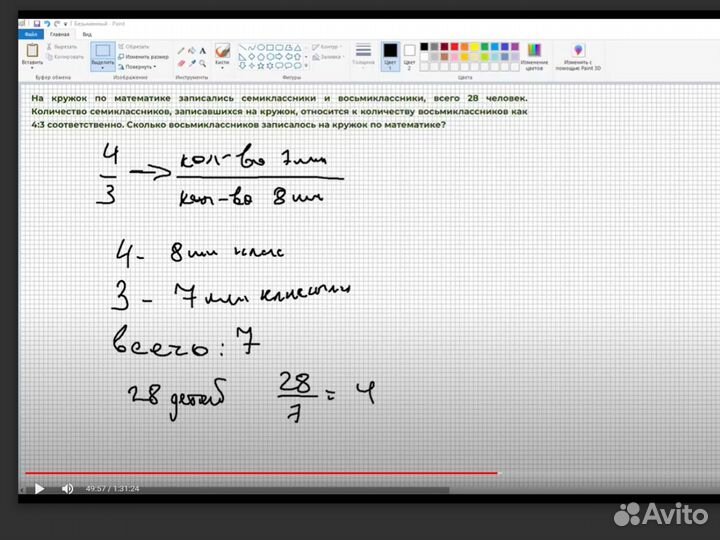 Безымянный - Paint
Файл Главная Вид
Вставить Вырезать Копировать Выделить Обрезать Изменить размер Повернуть Кисти Контур Заливка Толщина Цвет 1 Цвет 2 Изменение цветов Изменить с помощью Paint 3D
Буфер обмена Изображение Инструменты Фигуры Цвета
На кружок по математике записались семиклассники и восьмиклассники, всего 28 человек.
Количество семиклассников, записавшихся на кружок, относится к количеству восьмиклассников как
4:3 соответственно. Сколько восьмиклассников записалось на кружок по математике?
4 кол-во 7
3 кол-во 8
4 - 8
3 - 7
всего: 7
28 детей 28/7 = 4
49:57 / 1:31:24
Avito